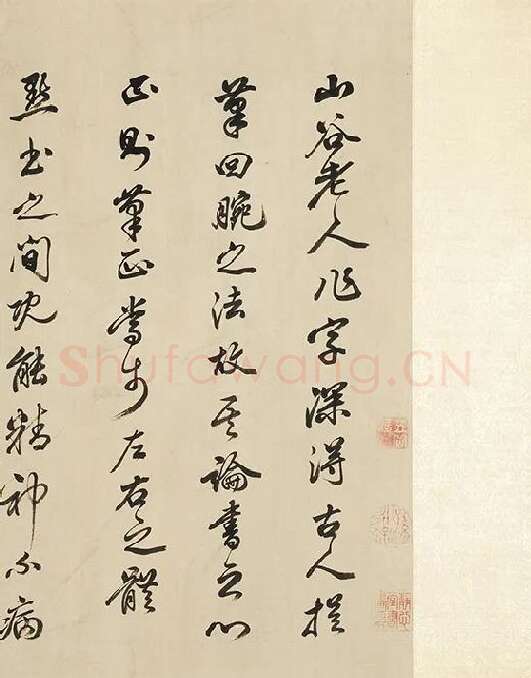 山谷老人作字深得古人捉
筆回腕之法故其論書云心
正則筆正左右之體
點畫之間既能精神不病
Shufawang.CN